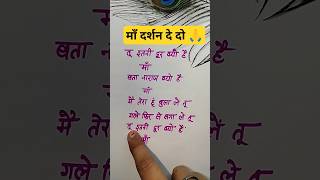 माँ दर्शन दे दो 🙏
तू इतनी दूर क्यों है
माँ
बता नाराज क्यों है
माँ
मैं तेरा हूं बुला ले तू
गले फिर से लगा ले तू
तू इतनी दूर क्यों है
माँ